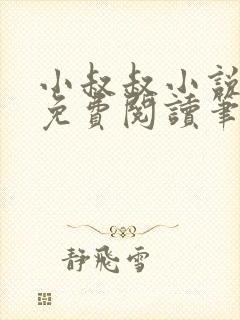 小叔叔小說
免費閱讀筆
靜飛雪